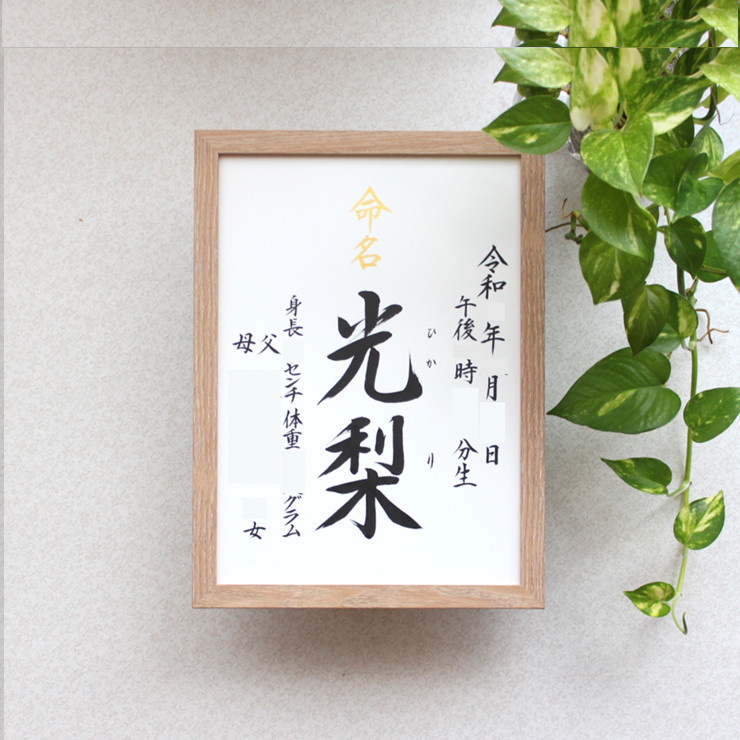 命名
令和 年 月 日
午後 時 分生
ひかり
光梨
身長 センチ 体重 グラム
父
母
女